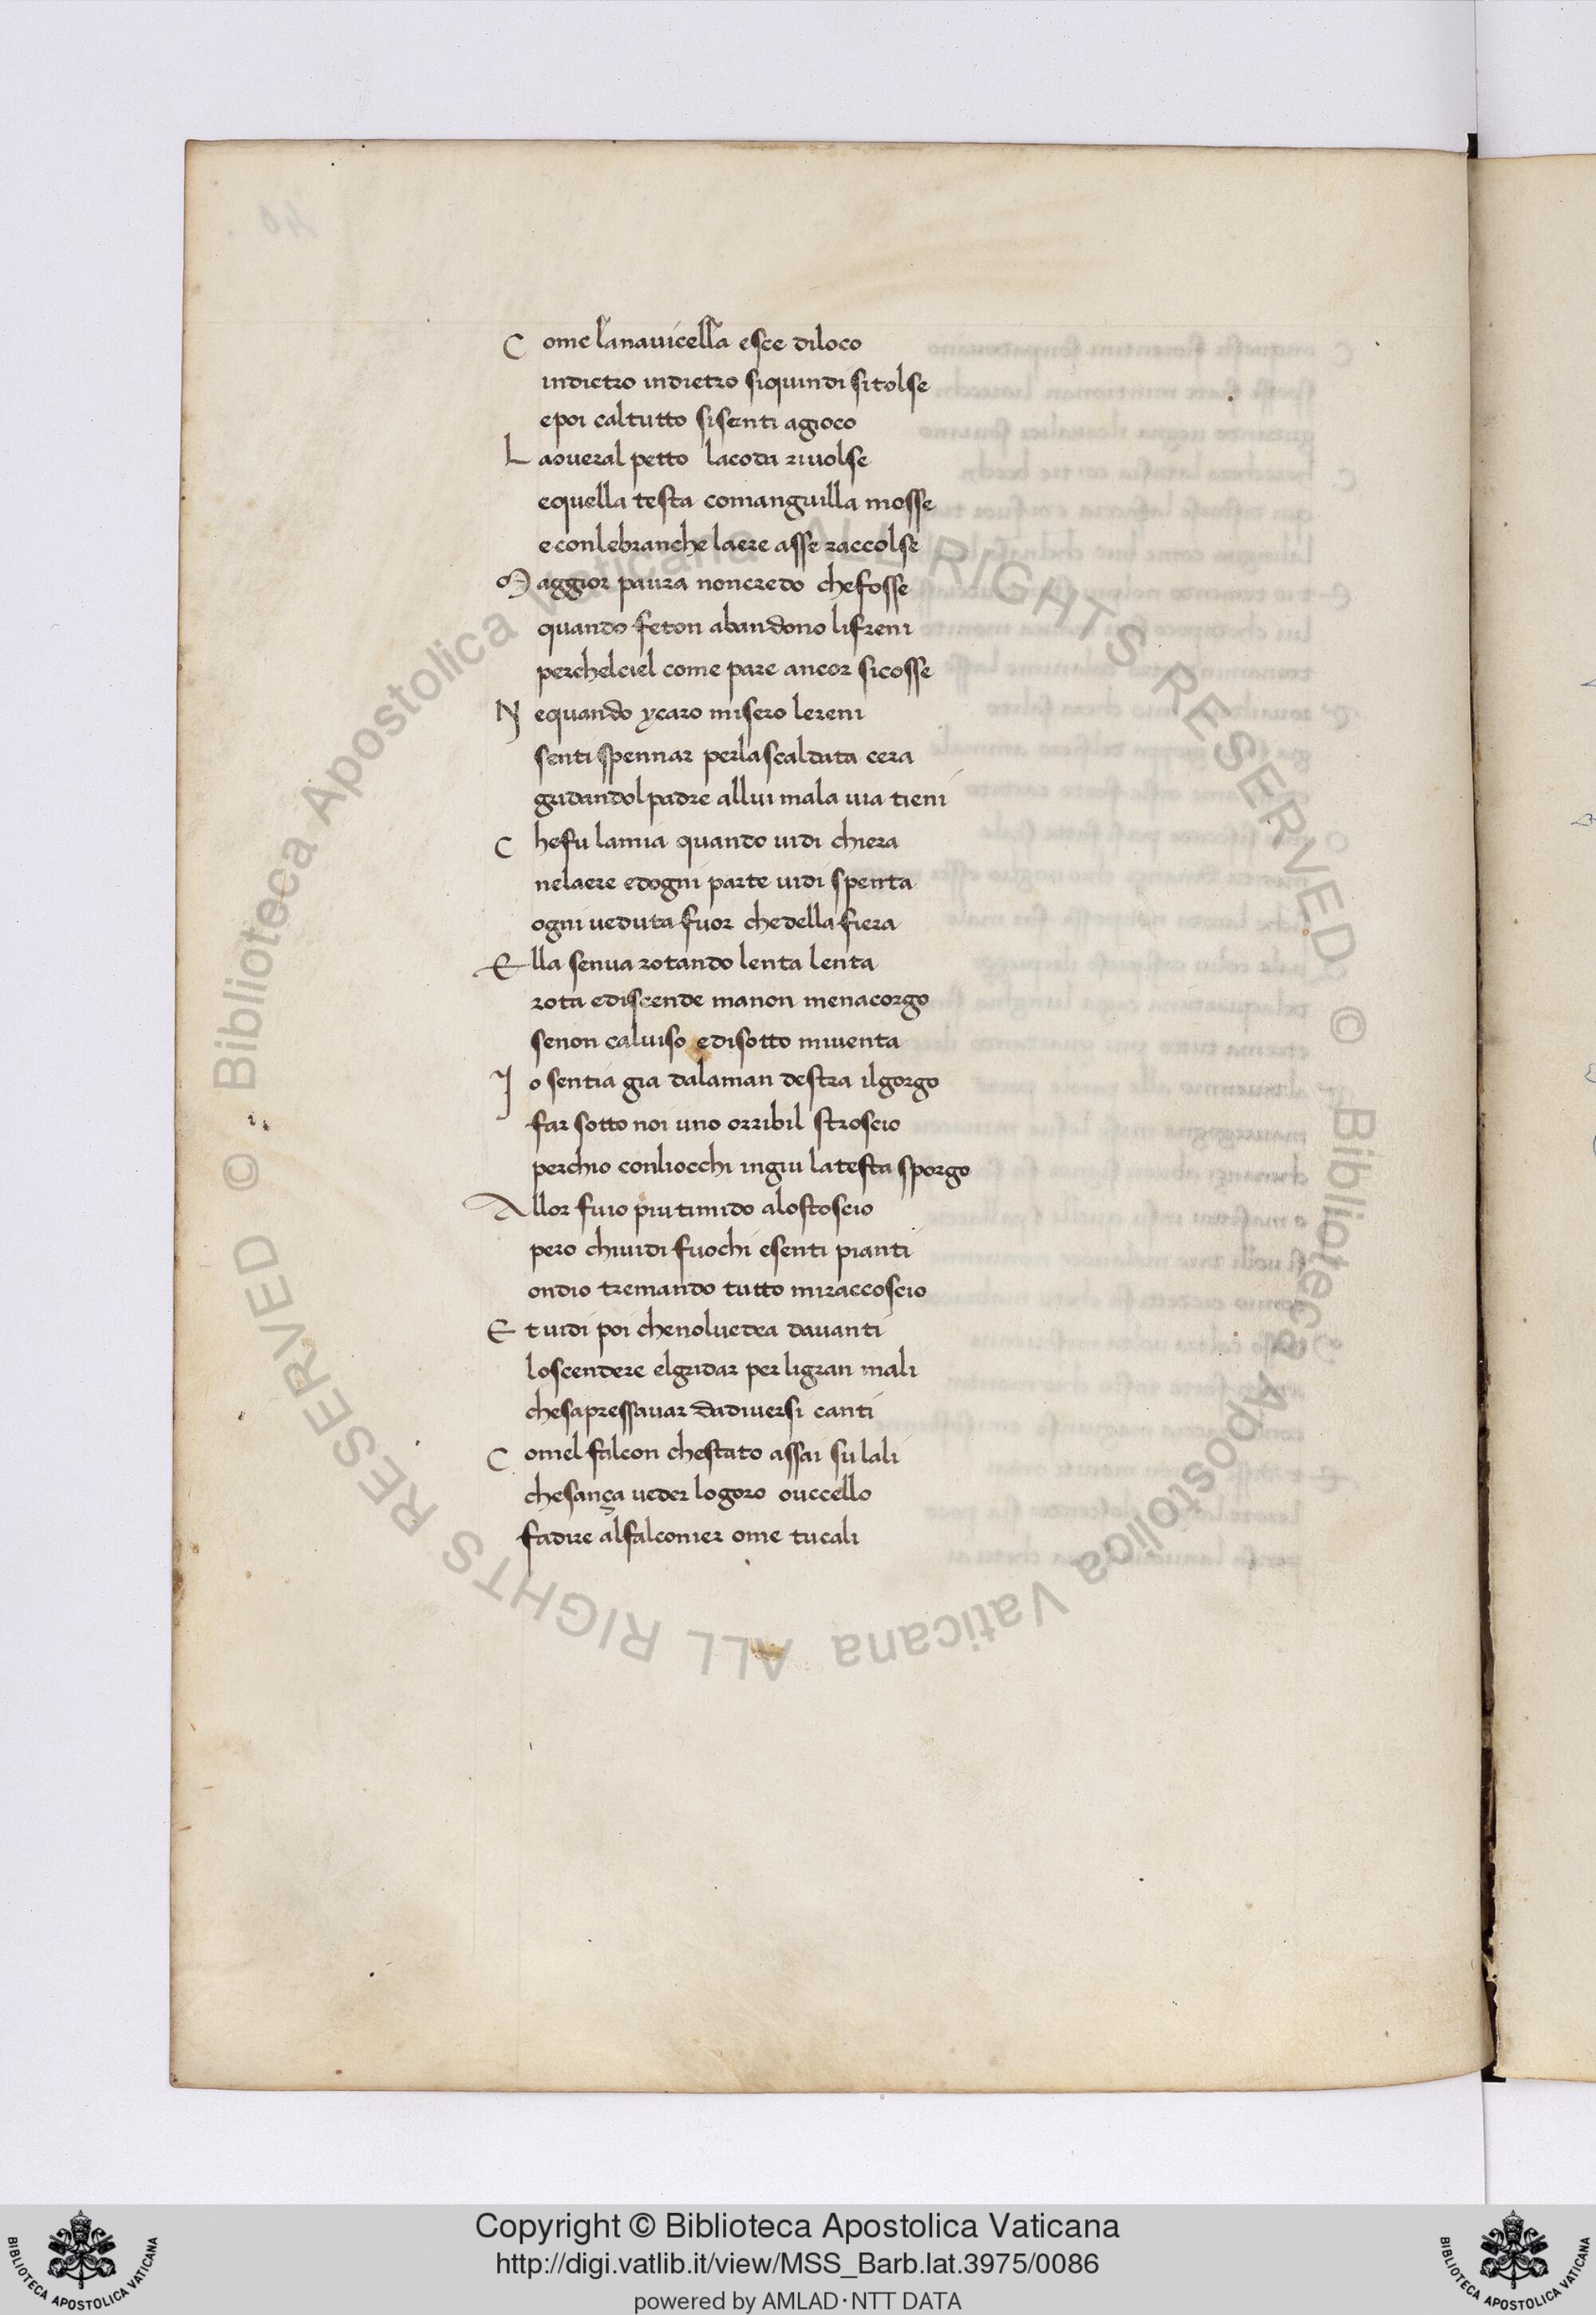 C ome lanauicella esce diloco
indietro indietro siquindi sitolse
epoi caltutto sisenti agioco
L aoueral petto lacoda riuolse
equella testa comanguilla mosse
econlebranche laere asse raccolse
M aggior paura noncredo chefosse
quando feton abandono lifreni
perchelciel come pare ancor sicosse
N equando ycaro misero lereni
senti spennar perlascaldata cera
gridandolpadre allui mala uia tieni
C hefu lamia quando uidi chiera
nelaere edogni parte uidi spenta
ogni ueduta fuor chedella fiera
E lla senua rotando lenta lenta
rota ediscende manon menacorgo
senon caluiso edisotto miuenta
I o sentia gia dalaman destra ilgorgo
far sotto noi uno orribil stroscio
perchio conliocchi ingiu latesta sporgo
A llor fuio piutimido alostoscio
pero chiuidi fuochi esenti pianti
ondio tremando tutto miraccoscio
E tuidi poi chenoluedea dauanti
loscendere elgridar per ligran mali
chesapressauar dadiuersi canti
C omel falcon chestato assai sulali
chesança ueder logoro ouccello
fadire alfalconier ome tucali
© Biblioteca Apostolica Vaticana ALL RIGHTS RESERVED © Biblioteca Apostolica Vaticana ALL RIGHTS RESERVED
Copyright © Biblioteca Apostolica Vaticana
http://digi.vatlib.it/view/MSS_Barb.lat.3975/0086
powered by AMLAD·NTT DATA
BIBLIOTECA APOSTOLICA VATICANA
BIBLIOTECA APOSTOLICA VATICANA